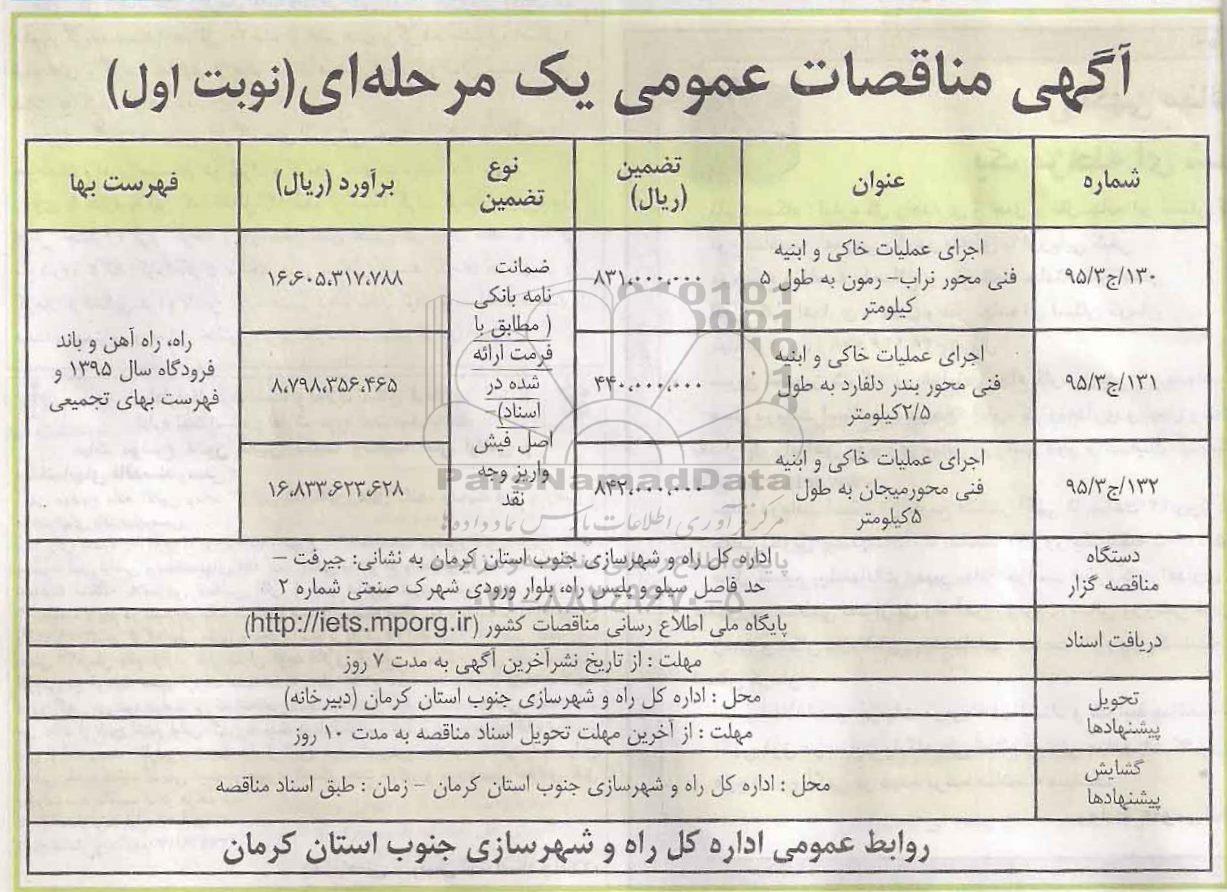 آگهی مناقصات عمومی یک مرحله‌ای(نوبت اول)
شماره
عنوان
تضمین
(ریال)
نوع
تضمین
برآورد (ریال)
فهرست بها
۱۳۰/ج/۹۵/۳
اجرای عملیات خاکی و ابنیه
فنی محور نراب- رمون به طول ۵
کیلومتر
۸۳۱,۰۰۰,۰۰۰
۱۶,۶۰۵,۳۱۷,۷۸۸
۱۳۱/ج/۹۵/۳
اجرای عملیات خاکی و ابنیه
فنی محور بندر دلفارد به طول
۲/۵کیلومتر
۴۴۰,۰۰۰,۰۰۰
۸,۷۹۸,۳۵۶,۴۶۵
۱۳۲/ج/۹۵/۳
اجرای عملیات خاکی و ابنیه
فنی محورمیجان به طول
۵کیلومتر
۸۴۲,۰۰۰,۰۰۰
۱۶,۸۳۳,۶۲۳,۶۲۸
ضمانت
نامه بانکی
( مطابق با
فرمت ارائه
شده در
اسناد)-
اصل فیش
واریز وجه
نقد
راه، راه آهن و باند
فرودگاه سال ۱۳۹۵ و
فهرست بهای تجمیعی
دستگاه
مناقصه گزار
اداره کل راه و شهرسازی جنوب استان کرمان به نشانی: جیرفت
حد فاصل سیلو و پلیس راه، بلوار ورودی شهرک صنعتی شماره ۲
دریافت اسناد
پایگاه ملی اطلاع رسانی مناقصات کشور (http://iets.mporg.ir)
مهلت : از تاریخ نشرآخرین آگهی به مدت ۷ روز
تحویل
پیشنهادها
محل : اداره کل راه و شهرسازی جنوب استان کرمان (دبیرخانه)
مهلت : از آخرین مهلت تحویل اسناد مناقصه به مدت ۱۰ روز
گشایش
پیشنهادها
محل : اداره کل راه و شهرسازی جنوب استان کرمان - زمان : طبق اسناد مناقصه
روابط عمومی اداره کل راه و شهرسازی جنوب استان کرمان
ParsNamadData
مرکز فرآوری اطلاعات پارس نماد داده‌ها
۰۲۱-۸۸۳۴۹۶۷۰-۵